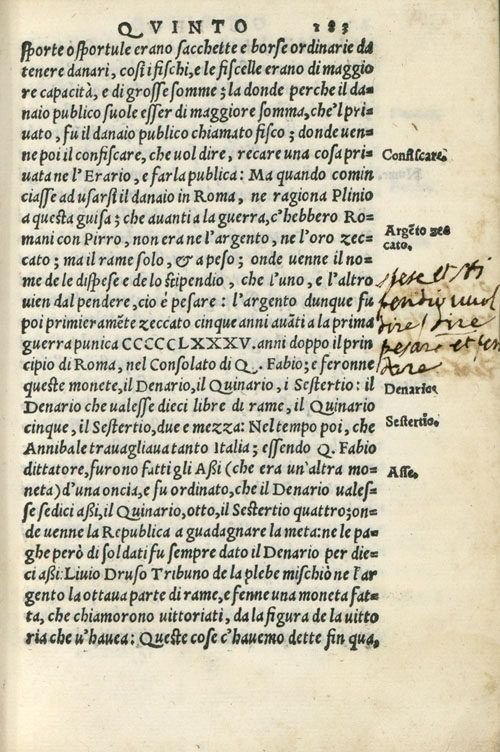 QVINTO 183
sporte o sportule erano sacchette e borse ordinarie da
tenere danari, cosi i fischi, e le fiscelle erano di maggio
re capacità, e di grosse somme; la donde perche il da=
naio publico suole esser di maggiore somma, che'l pri=
uato, fu il danaio publico chiamato fisco; donde uen=
ne poi il confiscare, che uol dire, recare una cosa pri=
uata ne l'Erario, e farla publica: Ma quando comin
ciasse ad usarsi il danaio in Roma, ne ragiona Plinio
a questa guisa; che auanti a la guerra, c'hebbero Ro=
mani con Pirro, non era ne l'argento, ne l'oro zec=
cato; ma il rame solo, & a peso; onde uenne il no=
me de le dispese e de lo stipendio, che l'uno, e l'altro
uien dal pendere, cio è pesare: l'argento dunque fu
poi primieramēte zeccato cinque anni auāti a la prima
guerra punica CCCCCLXXXV. anni doppo il prin
cipio di Roma, nel Consolato di Q. Fabio; e feronne
queste monete, il Denario, il Quinario, i Sestertio: il
Denario che ualesse dieci libre di rame, il Quinario
cinque, il Sestertio, due e mezza: Nel tempo poi, che
Annibale trauagliaua tanto Italia; essendo Q. Fabio
dittatore, furono fatti gli Assi (che era un'altra mo=
neta) d'una oncia, e fu ordinato, che il Denario uales=
se sedici assi, il Quinario, otto, il Sestertio quattro; on=
de uenne la Republica a guadagnare la meta: ne le pa=
ghe però di soldati fu sempre dato il Denario per die=
ci assi: Liuio Druso Tribuno de la plebe mischiò ne l'ar
gento la ottaua parte di rame, e fenne una moneta fat=
ta, che chiamorono uittoriati, da la figura de la uitto
ria che u'hauea: Queste cose c'hauemo dette fin qua,
Confiscare.
Argēto zec
cato.
spese et sti
pendio uuol
dire
pesare et
Denario.
Sestertio.
Asse.